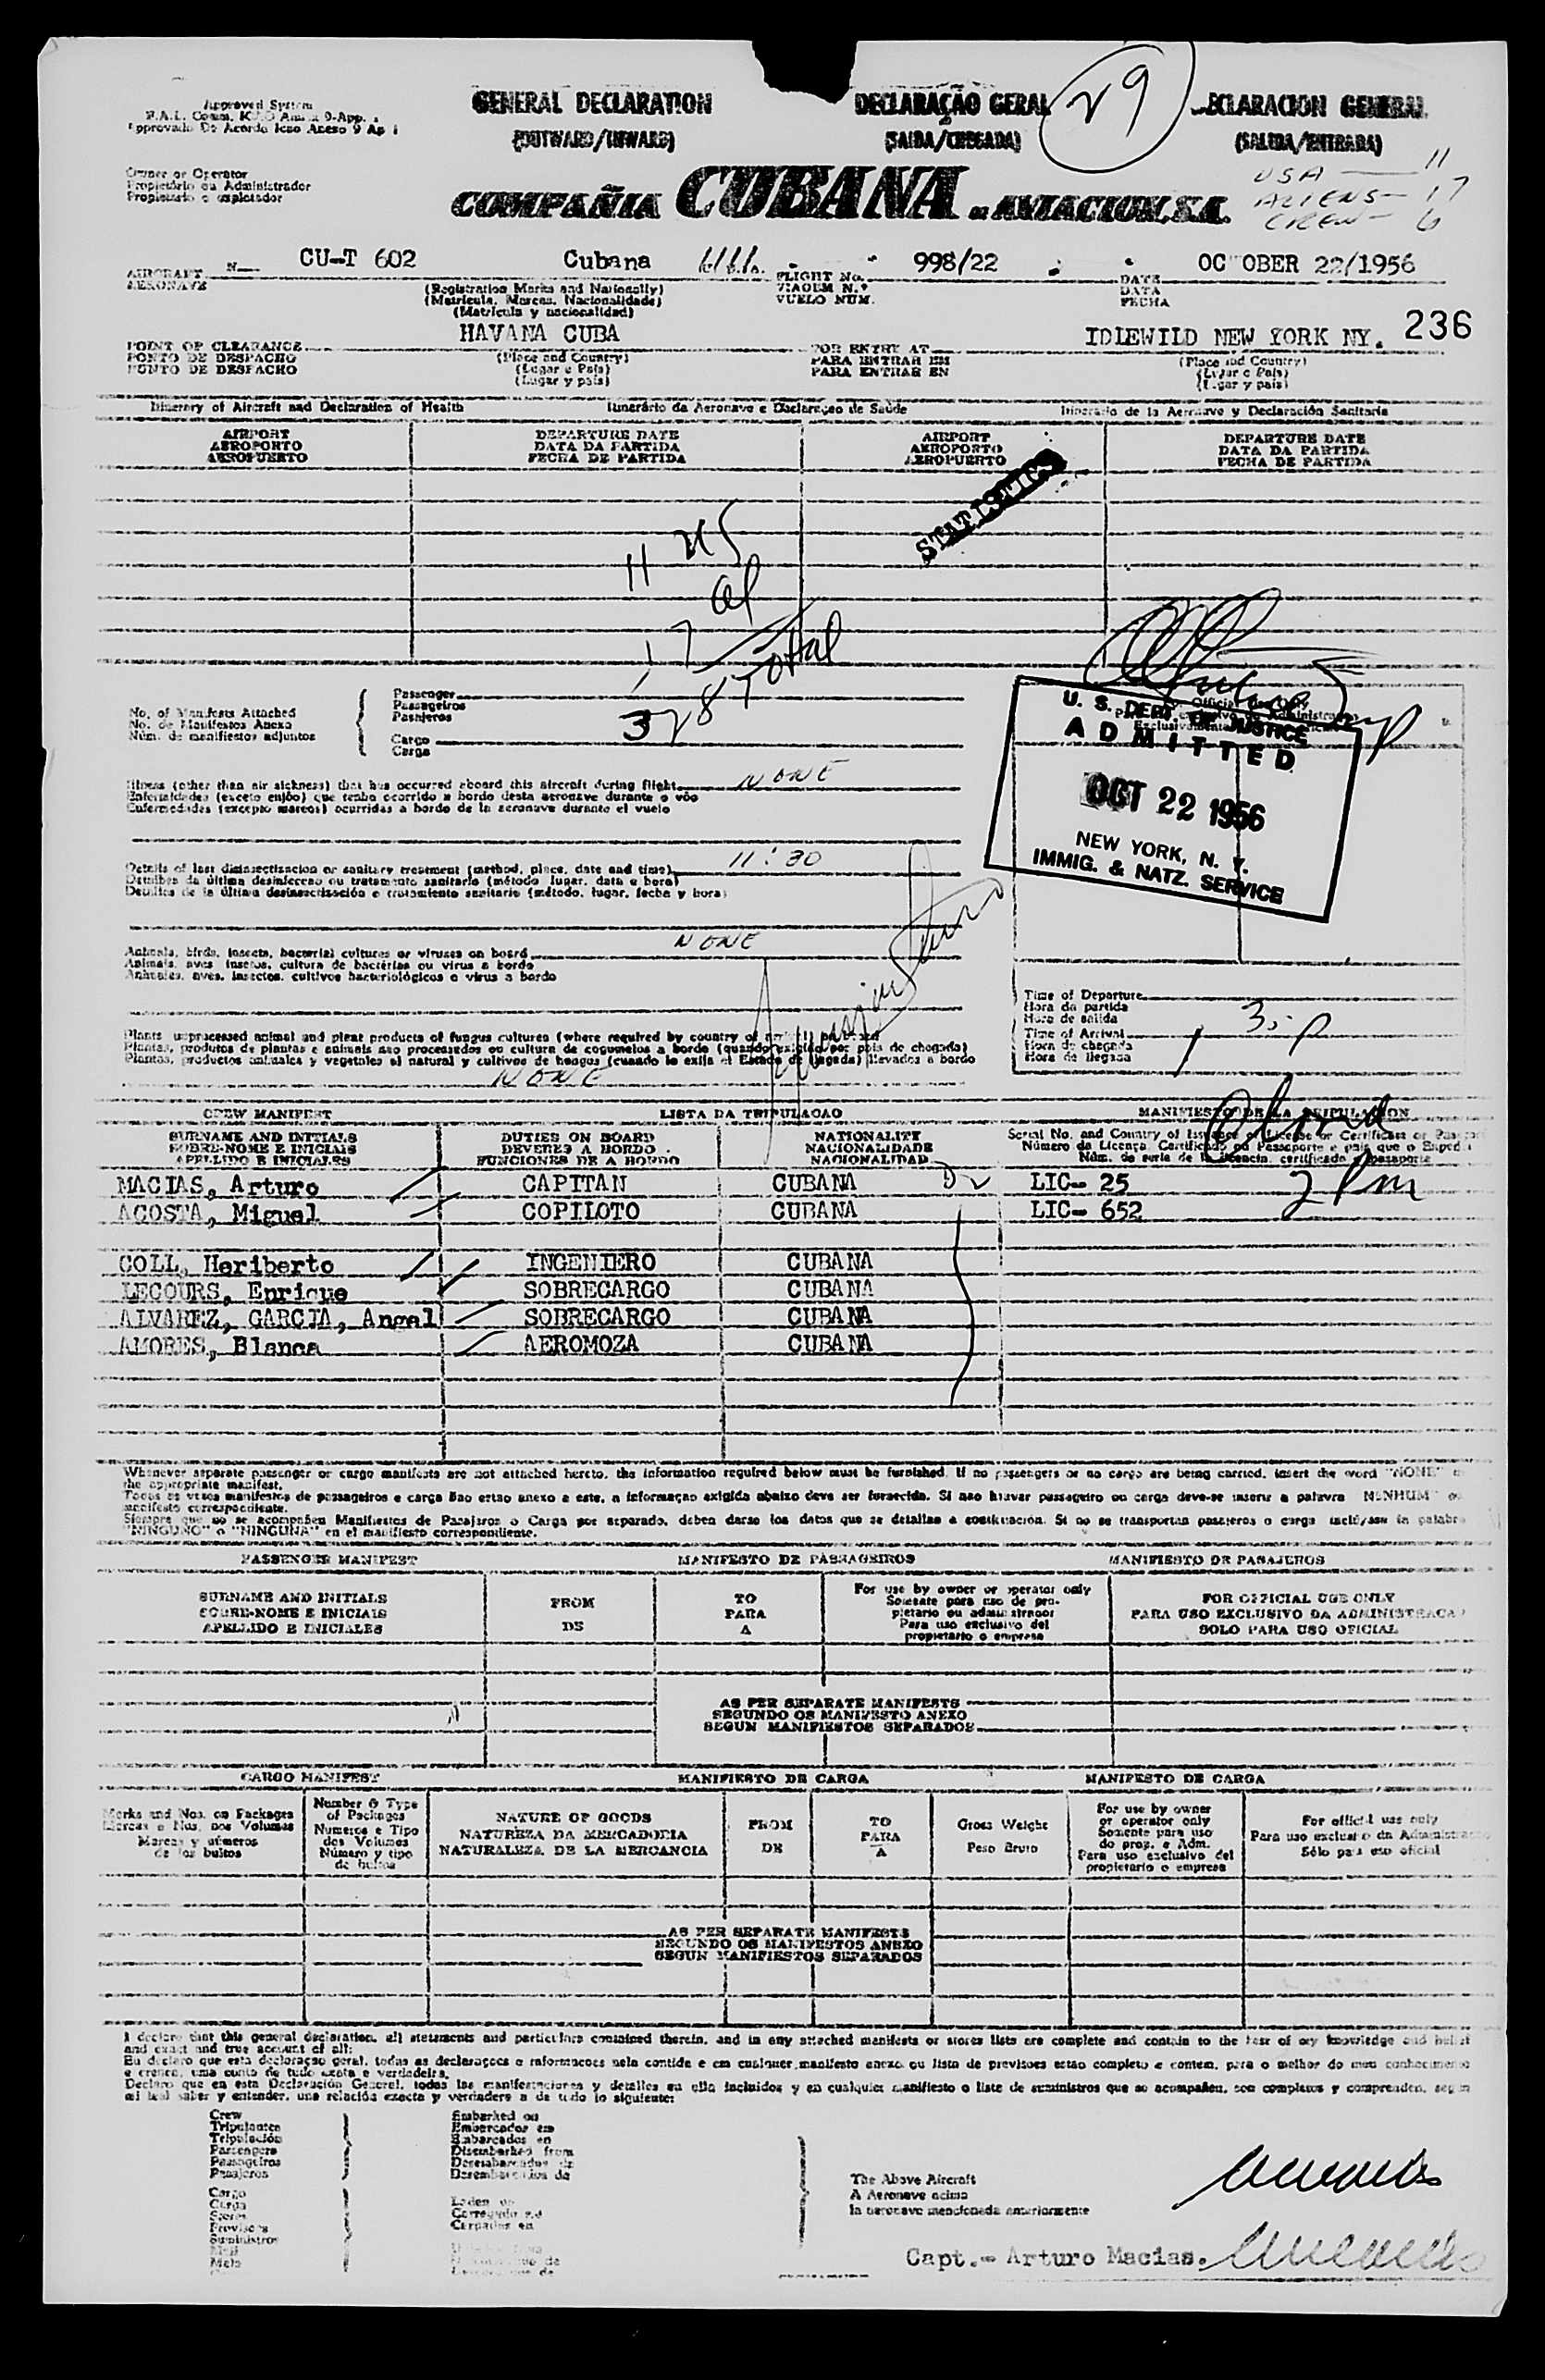 Approved System
GENERAL DECLARATION DECLARAÇÃO GERAL 29 DECLARACION GENERAL
(OUTWARD/INWARD) (SAIDA/CHEGADA) (SALIDA/ENTRADA)
Owner or Operator
Propietário ou Administrador
Propietario o explotador
COMPAÑIA CUBANA DE AVIACION, S.A.
USA — 11
ALIENS — 17
CREW — 6
AIRCRAFT N CU-T 602 Cubana FLIGHT No. 998/22 DATE OC OBER 22/1956
AERONAVE (Registration Marks and Nationality) VIAGEM N.º DATA
(Matricula, Marcas, Nacionalidade) VUELO NUM. FECHA
(Matricula y nacionalidad)
POINT OF CLEARANCE HAVANA CUBA FOR ENTRY AT IDLEWILD NEW YORK NY. 236
PONTO DE DESPACHO (Place and Country) PARA ENTRAR EM (Place and Country)
PUNTO DE DESPACHO (Lugar e País) PARA ENTRAR EN (Lugar e País)
(Lugar y país) (Lugar y país)
Itinerary of Aircraft and Declaration of Health Itinerário da Aeronave e Declaraçao de Saúde Itinerario de la Aeronave y Declaración Sanitaria
AIRPORT DEPARTURE DATE AIRPORT DEPARTURE DATE
AEROPORTO DATA DA PARTIDA AEROPORTO DATA DA PARTIDA
AEROPUERTO FECHA DE PARTIDA AEROPUERTO FECHA DE PARTIDA
STATISTICS
11 US
17 al
28 Total
No. of Manifests Attached
No. de Manifestos Anexo
Núm. de manifiestos adjuntos
Passenger
Passageiros
Pasajeros
Cargo
Carga
U. S. DEPT. OF JUSTICE
ADMITTED
OCT 22 1956
NEW YORK, N. Y.
IMMIG. & NATZ. SERVICE
Illness (other than air sickness) that has occurred aboard this aircraft during flight NONE
Enfermidades (exceto enjôo) que tenha ocorrido a bordo desta aeronave durante o vôo
Enfermedades (excepto mareos) ocurridas a bordo de la aeronave durante el vuelo
Details of last disinsectization or sanitary treatment (method, place, date and time) 11:30
Detalhes da última desinfeccao ou tratamento sanitario (método, lugar, data e hora)
Detalles de la última desinsectización o tratamiento sanitario (método, lugar, fecha y hora)
Animals, birds, insects, bacterial cultures or viruses on board NONE
Animais, aves insetos, cultura de bactérias ou virus a bordo
Animales, aves, insectos, cultivos bacteriológicos o virus a bordo
Time of Departure
Hora da partida
Hora de salida
Time of Arrival
Hora da chegada
Hora de llegada
Plants unprocessed animal and plant products of fungus cultures (where required by country of
Plantas, produtos de plantas e animais nao processados ou cultura de cogumelos a bordo (quando exigido por país de chegada)
Plantas, productos animales y vegetales al natural y cultivos de hongos (cuando lo exija el Estado de llegada) llevados a bordo
NONE
CREW MANIFEST LISTA DA TRIPULACAO MANIFIESTO DE LA TRIPULACION
SURNAME AND INITIALS DUTIES ON BOARD NATIONALITY Serial No. and Country of Issuance of License or Certificate or
SOBRE-NOME E INICIAIS DEVERES A BORDO NACIONALIDADE Número da Licença, Certificado ou Passaporte e pais que o
APELLIDO E INICIALES FUNCIONES DE A BORDO NACIONALIDAD Núm. de serie de la licencia, certificado o pasaporte
MACIAS, Arturo CAPITAN CUBANA LIC- 25 2 Pm
ACOSTA, Miguel COPILOTO CUBANA LIC- 652
COLL, Heriberto INGENIERO CUBANA
LECOURS, Enrique SOBRECARGO CUBANA
ALVAREZ, GARCIA, Angel SOBRECARGO CUBANA
AMORES, Blanca AEROMOZA CUBANA
Whenever separate passenger or cargo manifests are not attached hereto, the information required below must be furnished. If no passengers or no cargo are being carried, insert the word "NONE"
the appropriate manifest.
Todos os vezes manifestos de passageiros e carga nao ertao anexo a este, a informaçao exigida abaixo deve ser fornecida. Si nao houver passageiro ou carga deve-se inserir a palavra NENHUM"
manifesto correspondiente.
Siempre que no se acompañen Manifiestos de Pasajeros o Carga por separado, deben darse los datos que se detallan a continuación. Si no se transportan pasajeros o carga inclúyase la palabra
"NINGUNO" o "NINGUNA" en el manifiesto correspondiente.
PASSENGER MANIFEST MANIFESTO DE PASSAGEIROS MANIFIESTO DE PASAJEROS
SURNAME AND INITIALS FROM TO For use by owner or operator only FOR OFFICIAL USE ONLY
SOBRE-NOME E INICIAIS DE PARA Somente para uso de pro- PARA USO EXCLUSIVO DA
APELLIDO E INICIALES A pietario ou administrador SOLO PARA USO OFICIAL
Para uso exclusivo del
propietario o empresa
AS PER SEPARATE MANIFESTS
SEGUNDO OS MANIFESTO ANEXO
SEGUN MANIFIESTOS SEPARADOS
CARGO MANIFEST MANIFIESTO DE CARGA MANIFESTO DE CARGA
Marks and Nos. on Packages Number & Type of Packages NATURE OF GOODS FROM TO Gross Weight For use by owner or operator only For official use only
Marcas e Nos. nos Volumes Numeros e Tipo dos Volumes NATUREZA DA MERCADORIA DE PARA Peso Bruto Somente para uso do prop. e Adm. Para uso exclusivo da
Marcas y números de los bultos Número y tipo de bultos NATURALEZA DE LA MERCANCIA A Para uso exclusivo del propietario o empresa Sólo para uso oficial
AS PER SEPARATE MANIFESTS
SEGUNDO OS MANIFESTOS ANEXO
SEGUN MANIFIESTOS SEPARADOS
I declare that this general declaration, all statements and particulars contained therein, and in any attached manifests or stores lists are complete and contain to the best of my knowledge and belief
and exact and true account of all:
Eu declaro que esta declaraçao geral, todas as declaraçoes e informacoes nela contida e em cualquer manifesto anexo ou lista de previsoes estao completo e contem, para o melhor do meu conhecimento
e crenca, uma conta de tudo exata e verdadeira.
Declaro que en esta Declaración General, todas las manifestaciones y detalles en ella incluidos y en cualquier manifiesto o liste de suministros que se acompañen, son completos y comprenden, según
mi leal saber y entender, una relación exacta y verdadera a de todo lo siguiente:
Crew
Tripulantes
Tripulación
Passengers
Passageiros
Pasajeros
Cargo
Carga
Stores
Suministros
Embarked on
Embarcados em
Embarcados en
Disembarked from
The Above Aircraft
A Aeronave acima
la aeronave mencionada anteriormente
Capt.- Arturo Macias.